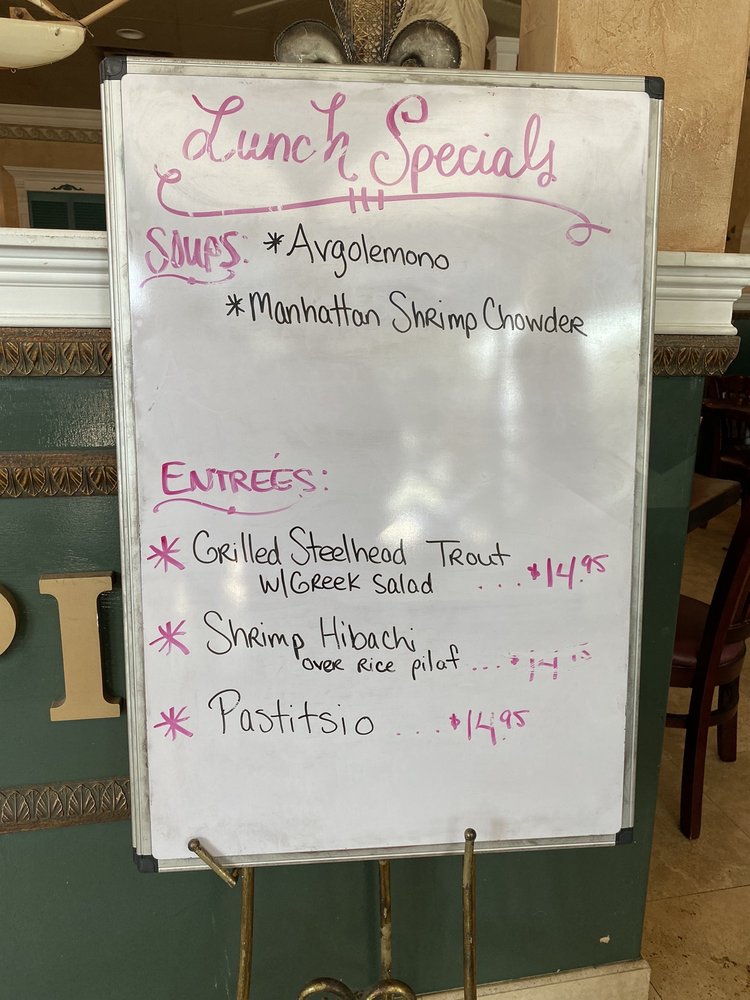 Lunch Specials
SOUPS: *Avgolemono
*Manhattan Shrimp Chowder
ENTREÉS:
* Grilled Steelhead Trout
w/Greek Salad ... $14.95
* Shrimp Hibachi
over Rice pilaf ... $14
* Pastitsio .... $14.95
PI